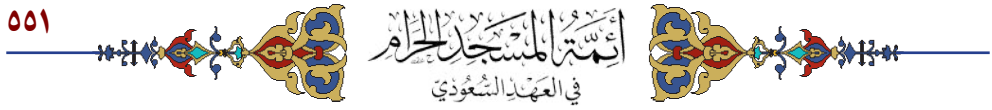 ٥٥١
أَئِمَّةُ المَسْجِدِ الحَرَامِ
في العَهْدِ السُّعُودِيّ